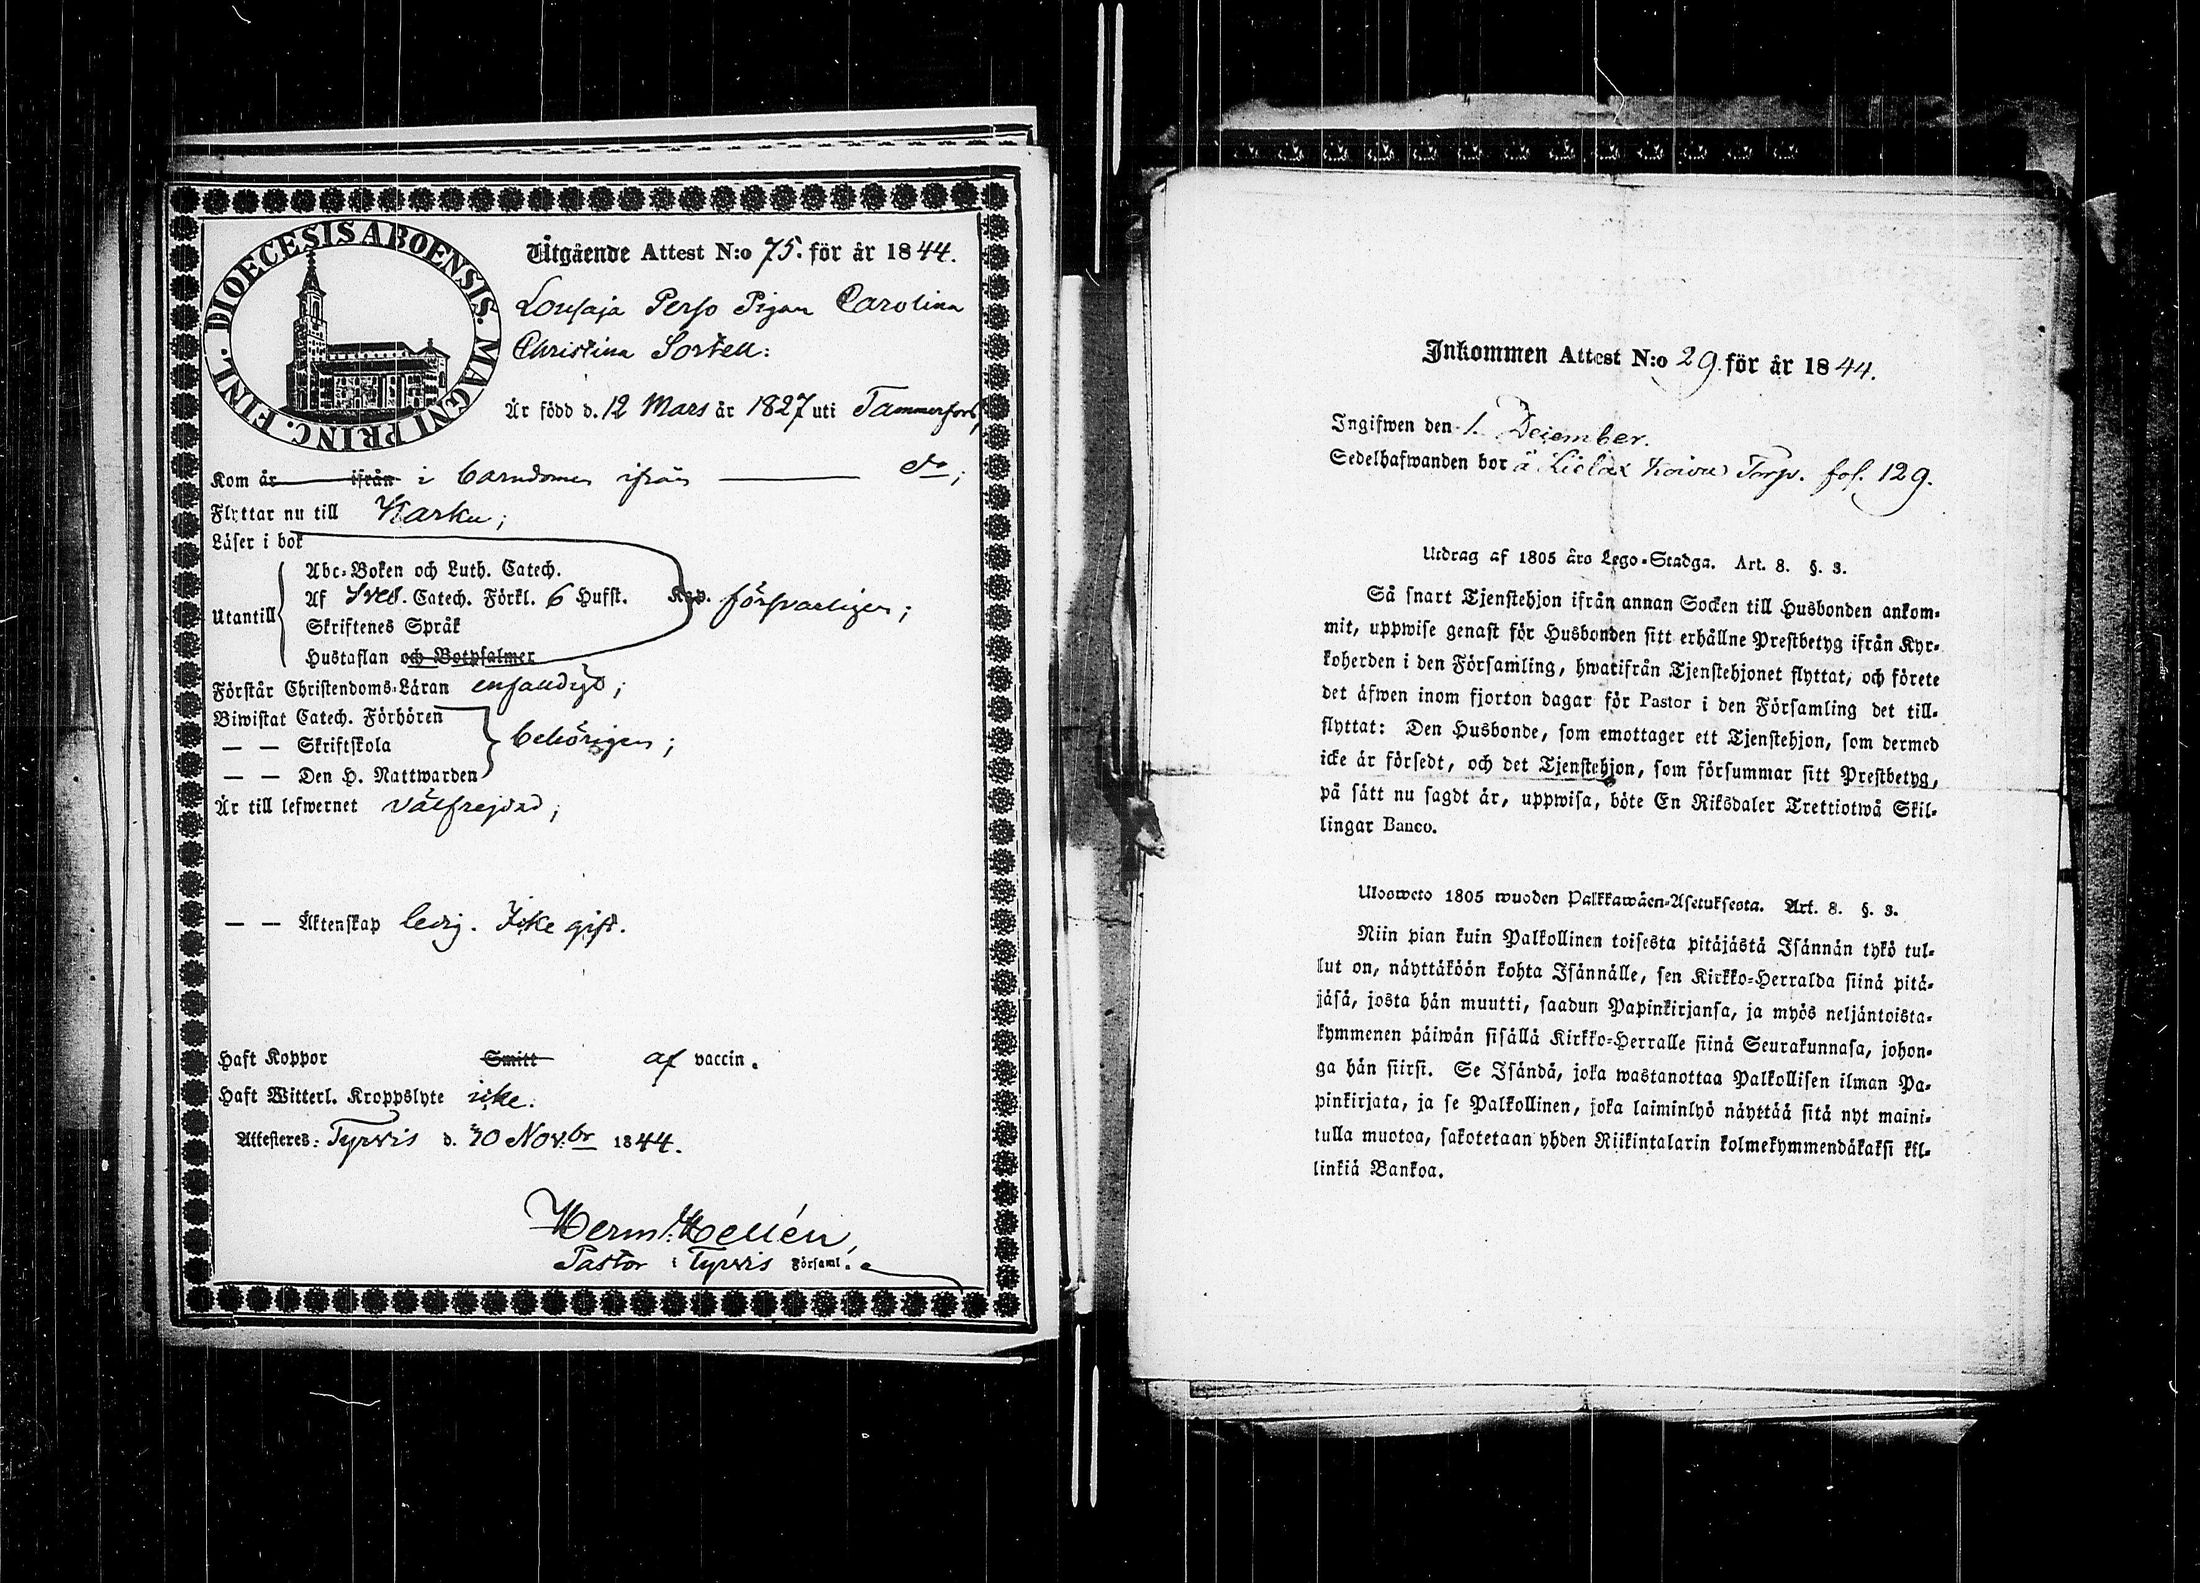 DIOECESIS ABOENSIS. MAGNI PRINC. FINL.
Utgående Attest N:o 75. för år 1844.
Lousaja Perso Pigan Carolina
Christina Sorten:
Är född d. 12 Mars år 1827 uti Tammerfors,
Kom år ifrån i barndomen ifrån do;
Flyttar nu till Karku;
Läser i bok
Utantill
Abc-Boken och Luth. Catech.
Af Sved. Catech. Förkl. 6 Hufst. Kap. försvarligen;
Skriftenes Språk
Hustaflan och Botpsalmer
Förstår Christendoms-Läran enfaldigt;
Biwistat Catech. Förhören
— — Skriftskola behörigen;
— — Den H. Nattwarden
Är till lefwernet välfrejdad;
— — Äktenskap ledig. Icke gift.
Haft Koppor Smitt af vaccin.
Haft Witterl. Kroppslyte icke.
Attesteres: Tyrvis d. 30 Nov:br 1844.
Herm: Hellén,
Pastor i Tyrvis Församl.
Inkommen Attest N:o 29. för år 1844.
Ingifwen den 1. December.
Sedelhafwanden bor å Kiolax Koivu Torp. fol. 129.
Utdrag af 1805 års Lego-Stadga. Art. 8. §. 3.
Så snart Tjenstehjon ifrån annan Socken till Husbonden ankom-
mit, uppwise genast för Husbonden sitt erhållne Prestbetyg ifrån Kyr-
koherden i den Församling, hwarifrån Tjenstehjonet flyttat, och förete
det äfwen inom fjorton dagar för Pastor i den Församling det till-
flyttat: Den Husbonde, som emottager ett Tjenstehjon, som dermed
icke är försedt, och det Tjenstehjon, som försummar sitt Prestbetyg,
på sätt nu sagdt är, uppwisa, böte En Riksdaler Trettiotwå Skil-
lingar Banco.
Ulosweto 1805 wuoden Palkkawäen-Asetuksesta. Art. 8. §. 3.
Niin pian kuin Palkollinen toisesta pitäjästä Isännän tykö tul-
lut on, näyttäköön kohta Isännälle, sen Kirkko-Herralda siinä pitä-
jäsä, josta hän muutti, saadun Papinkirjansa, ja myös neljäntoista-
kymmenen päiwän sisällä Kirkko-Herralle siinä Seurakunnasa, johon-
ga hän siirsi. Se Isändä, joka wastanottaa Palkollisen ilman Pa-
pinkirjata, ja se Palkollinen, joka laiminlyö näyttää sitä nyt maini-
tulla muotoa, sakotetaan yhden Riikintalarin kolmekymmendäkaksi kil-
linkiä Bankoa.